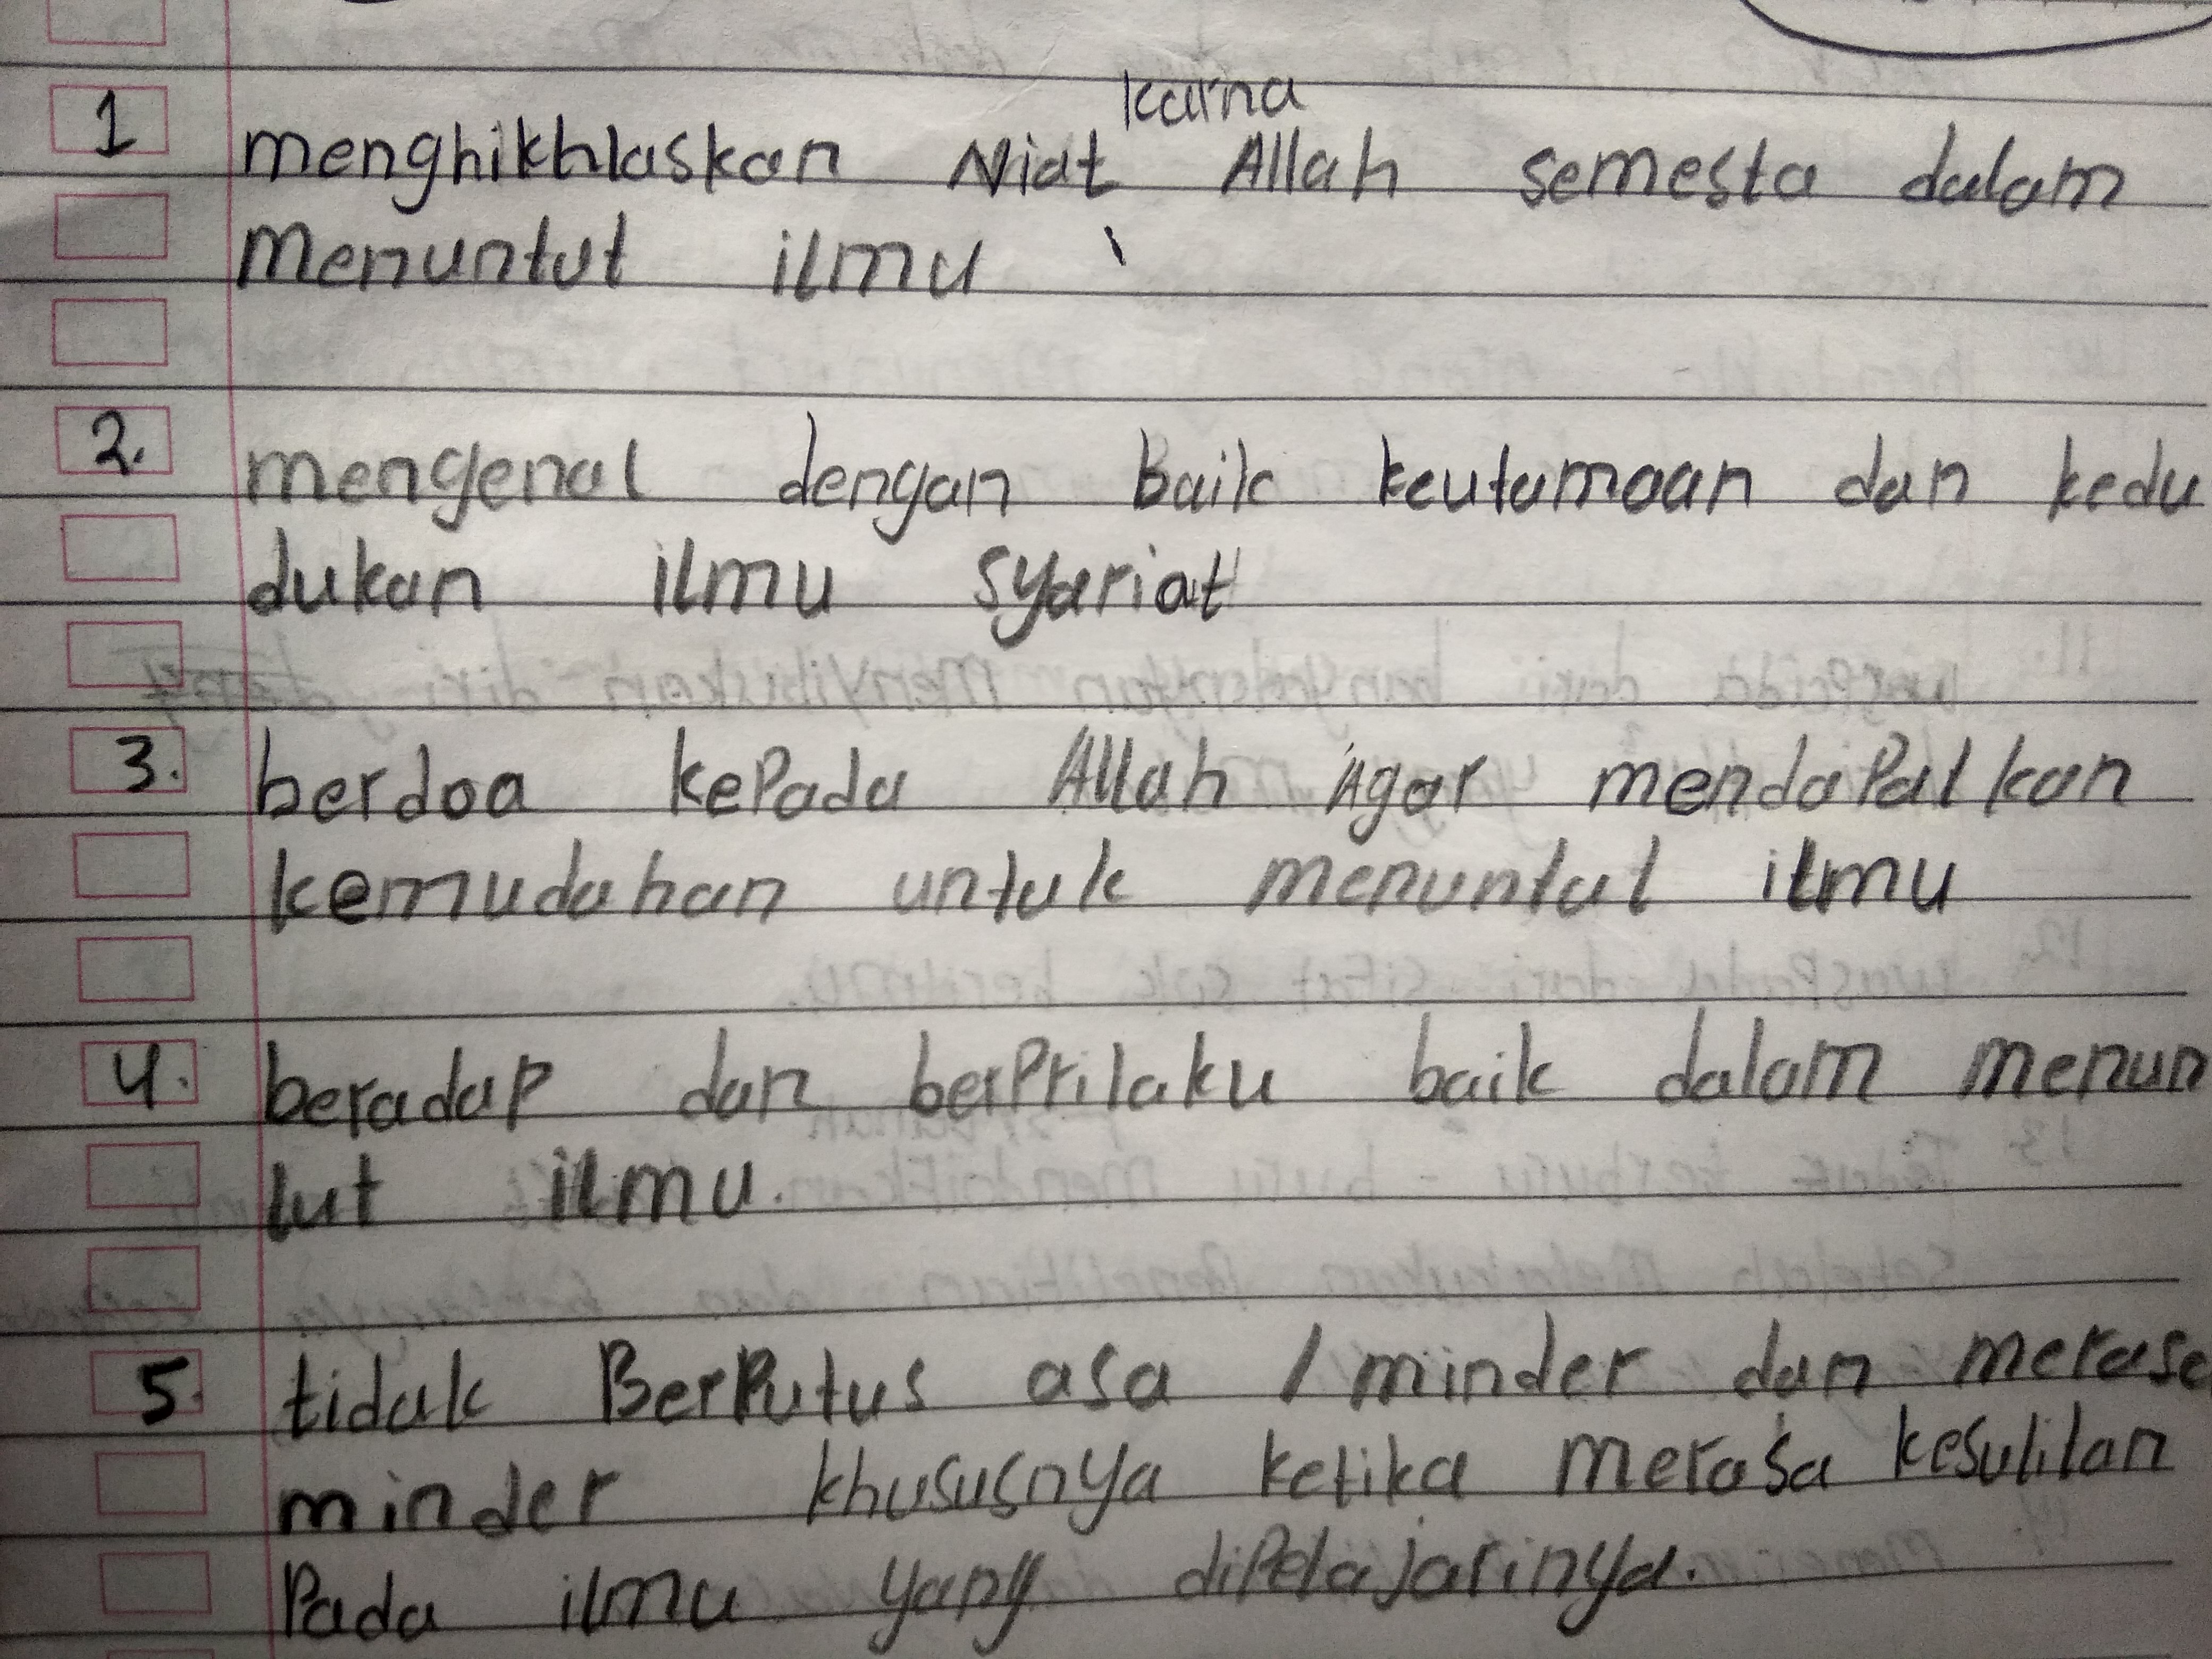 1 menghikhlaskan Niat karna Allah semesta dalam
menuntut ilmu
2. mengenal dengan baik keutamaan dan kedu
dukan ilmu syariat
3. berdoa kepada Allah Agar mendapatkan
kemudahan untuk menuntut ilmu
4. beradap dan berprilaku baik dalam menun
tut ilmu.
5. tidak Berputus asa / minder dan merasa
minder khususnya ketika merasa kesulitan
Pada ilmu yang dipelajarinya.